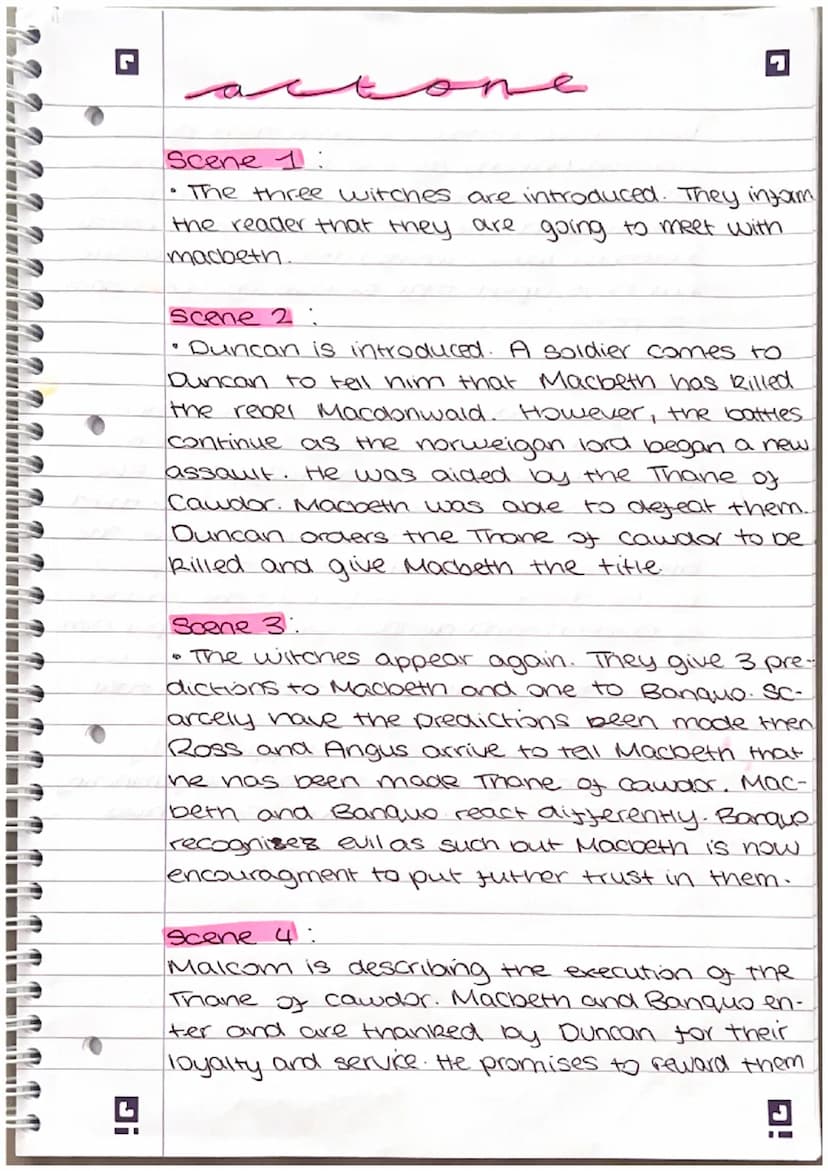 act one
Scene 1 :
• The three witches are introduced. They inform
the reader that they are going to meet with
macbeth.
Scene 2 :
• Duncan is introduced. A soldier comes to
Duncan to tell him that Macbeth has killed
the rebel Macdonwald. However, the battles
continue as the norweigan lord began a new
assault. He was aided by the Thane of
Cawdor. Macbeth was able to defeat them.
Duncan orders the Thane of cawdor to be
killed and give Macbeth the title.
Scene 3 :
• The witches appear again. They give 3 pre-
dictions to Macbeth and one to Banquo. Sc-
arcely have the predictions been made then
Ross and Angus arrive to tell Macbeth that
he has been made Thane of cawdor. Mac-
beth and Banquo react differently. Banquo
recognises evil as such but Macbeth is now
encouragment to put futher trust in them.
Scene 4 :
Malcom is describing the execution of the
Thane of cawdor. Macbeth and Banquo en-
ter and are thanked by Duncan for their
loyalty and service. He promises to reward them